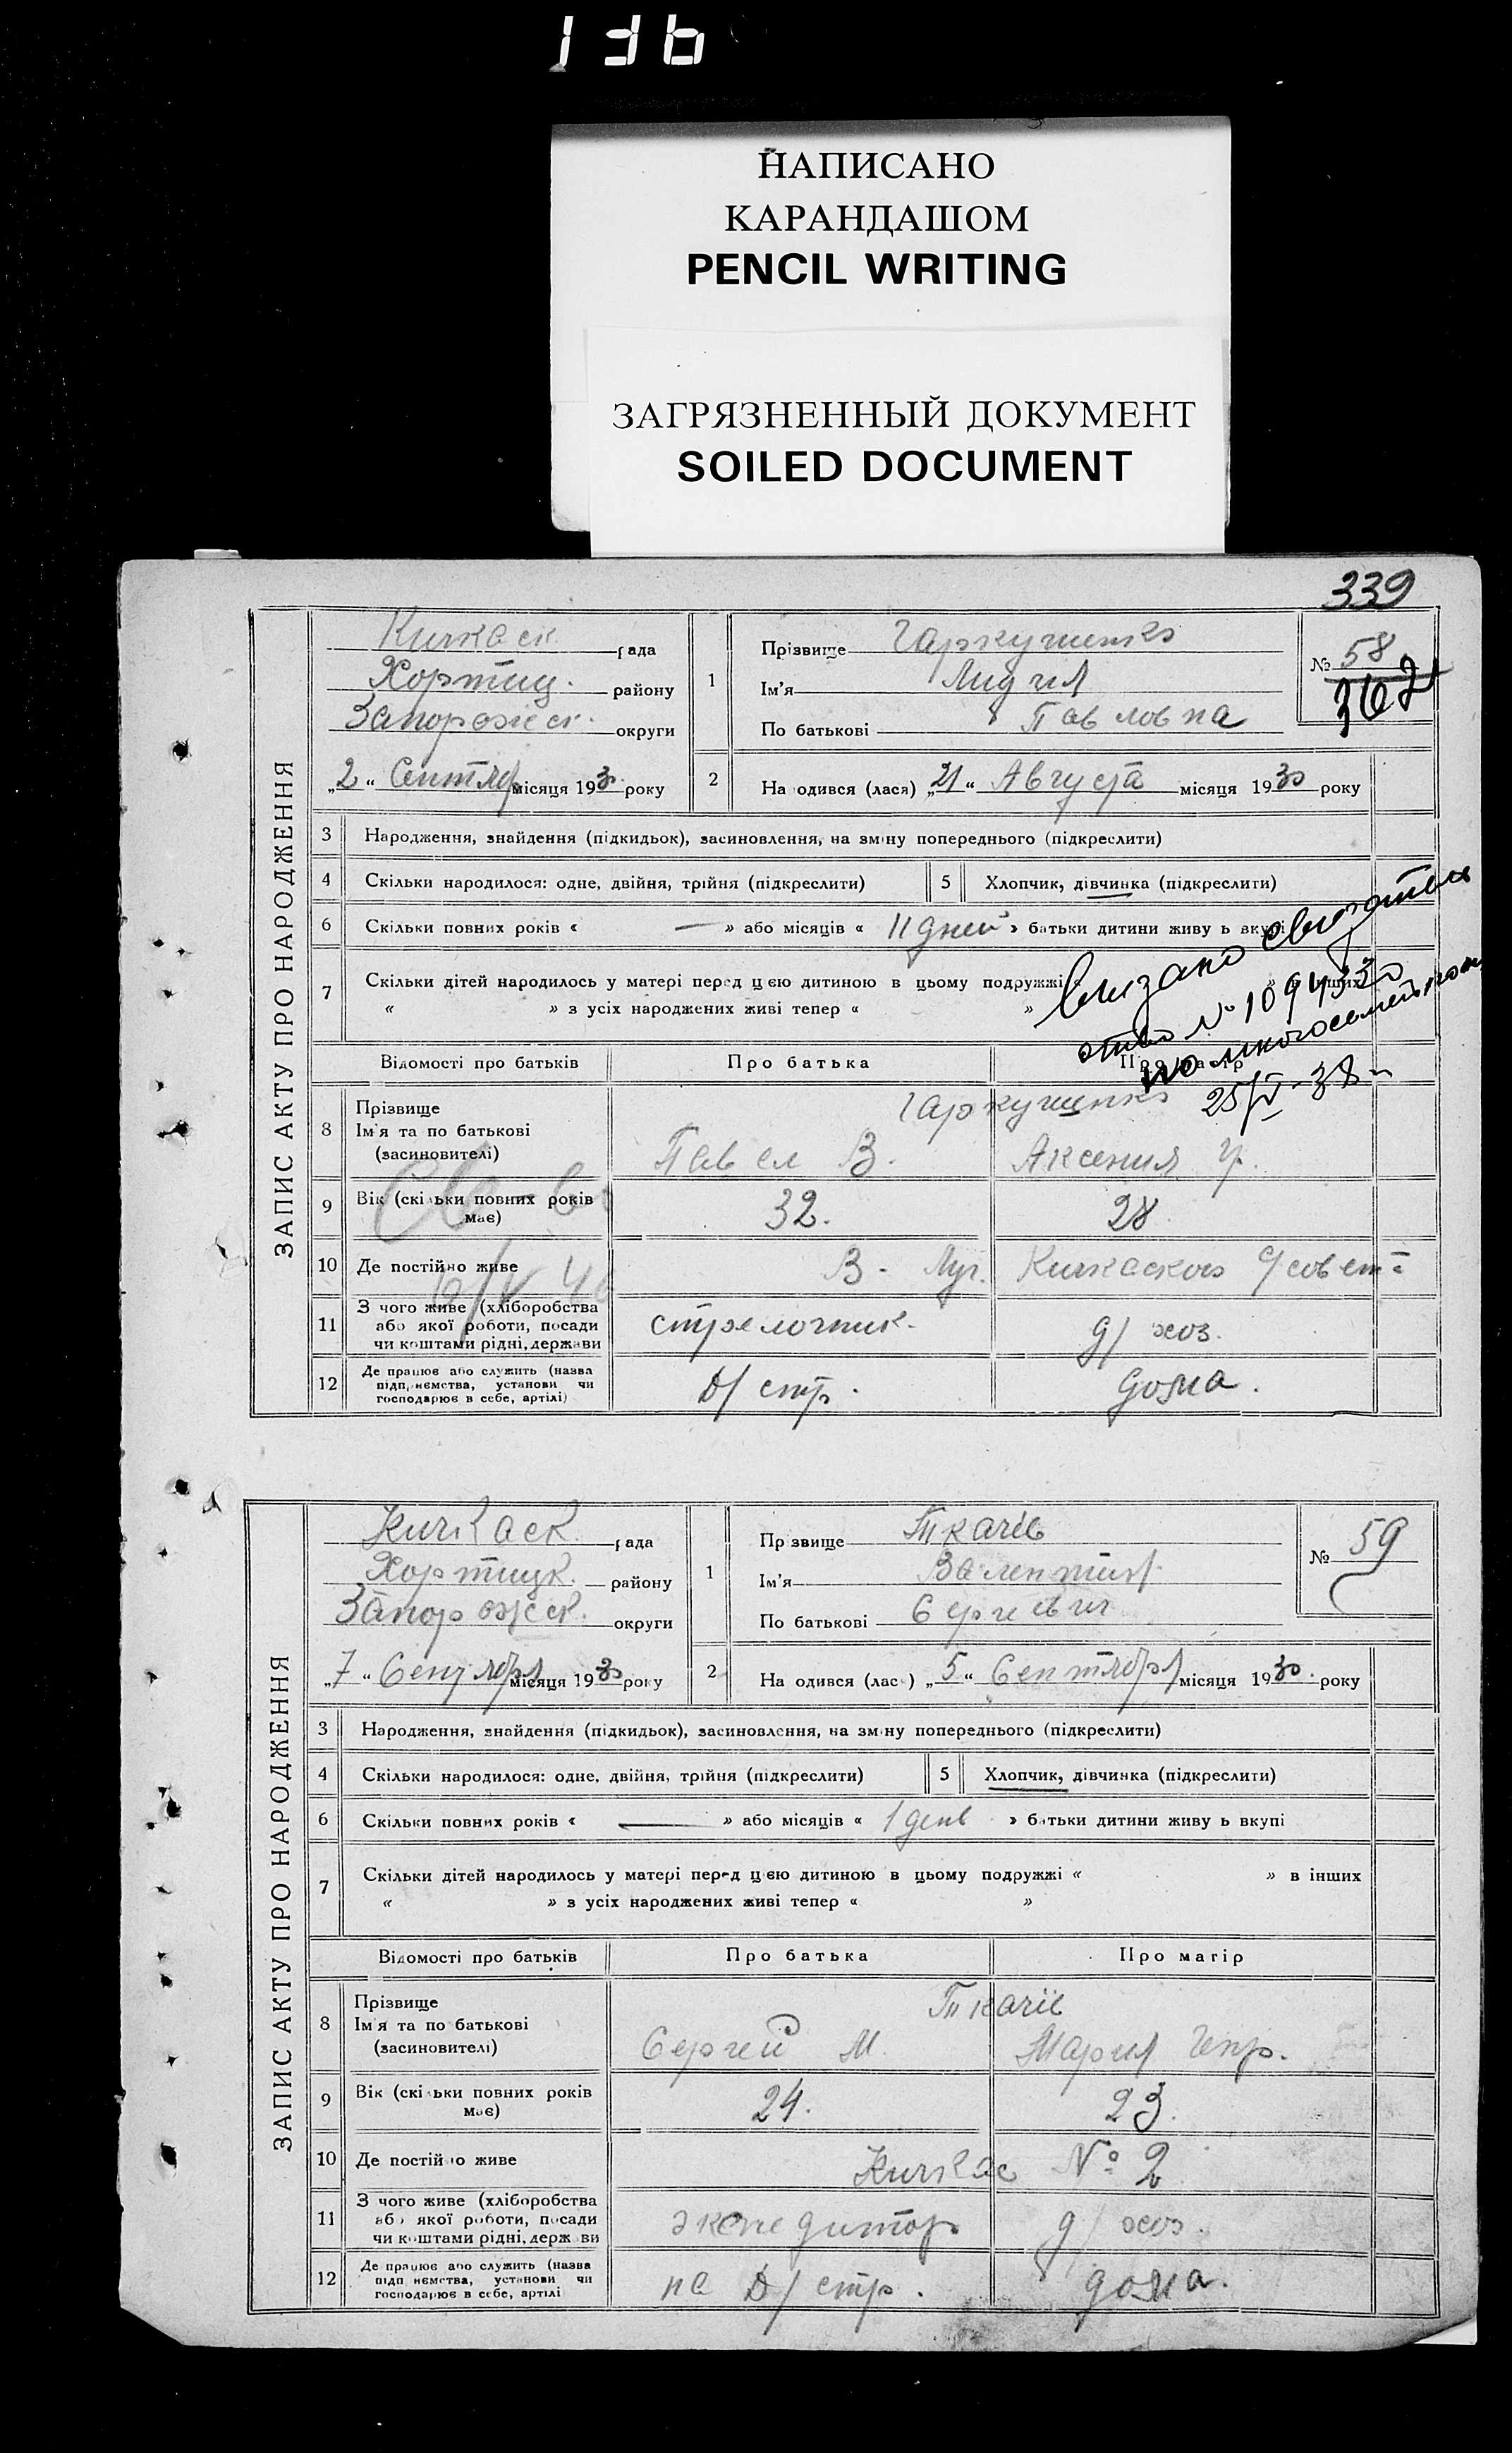 136
НАПИСАНО
КАРАНДАШОМ
PENCIL WRITING
ЗАГРЯЗНЕННЫЙ ДОКУМЕНТ
SOILED DOCUMENT
339
ЗАПИС АКТУ ПРО НАРОДЖЕННЯ
Кичкаск рада
Хортиц. району
Запорожск. округи
„2“ Сентяб місяця 1930 року
1 Прізвище Гаркушенко
Ім'я Лидия
По батькові Павловна
№ 58
362
2 Народився (лася) „21“ Августа місяця 1930 року
3 Народження, знайдення (підкидьок), засиновлення, на зміну попереднього (підкреслити)
4 Скільки народилося: одне, двійня, трійня (підкреслити) 5 Хлопчик, дівчинка (підкреслити)
6 Скільки повних років « — » або місяців « 11 дней » батьки дитини живуть вкупі
7 Скільки дітей народилось у матері перед цією дитиною в цьому подружжі « » в інших
« » з усіх народжених живі тепер « »
№ 1094330
25/V-38
Відомості про батьків Про батька Про матір
8 Прізвище Гаркушенко
Ім'я та по батькові
(засиновителі) Павел В. Аксения Гр.
9 Вік (скільки повних років має) 32. 28
10 Де постійно живе В. Луг. Кичкаского с/совета
11 З чого живе (хліборобства
або якої роботи, посади
чи коштами рідні, держави стрелочник. д/хоз.
12 Де працює або служить (назва
підприємства, установи чи
господарює в себе, артілі) Д/стр. дома.
ЗАПИС АКТУ ПРО НАРОДЖЕННЯ
Кичкаск. рада
Хортицк. району
Запорожск. округи
„7“ Сентября місяця 1930 року
1 Прізвище Ткачів
Ім'я Валентин
По батькові Сергевич
№ 59
2 Народився (лась) „5“ Сентября місяця 1930. року
3 Народження, знайдення (підкидьок), засиновлення, на зміну попереднього (підкреслити)
4 Скільки народилося: одне, двійня, трійня (підкреслити) 5 Хлопчик, дівчинка (підкреслити)
6 Скільки повних років « — » або місяців « 1 день » батьки дитини живуть вкупі
7 Скільки дітей народилось у матері перед цією дитиною в цьому подружжі « » в інших
« » з усіх народжених живі тепер « »
Відомості про батьків Про батька Про матір
8 Прізвище Ткачів
Ім'я та по батькові
(засиновителі) Сергей М. Мария Гепр.
9 Вік (скільки повних років має) 24. 23.
10 Де постійно живе Кичкас № 2
11 З чого живе (хліборобства
або якої роботи, посади
чи коштами рідні, держави экспедитор д/хоз.
12 Де працює або служить (назва
підприємства, установи чи
господарює в себе, артілі на Д/стр. дома.